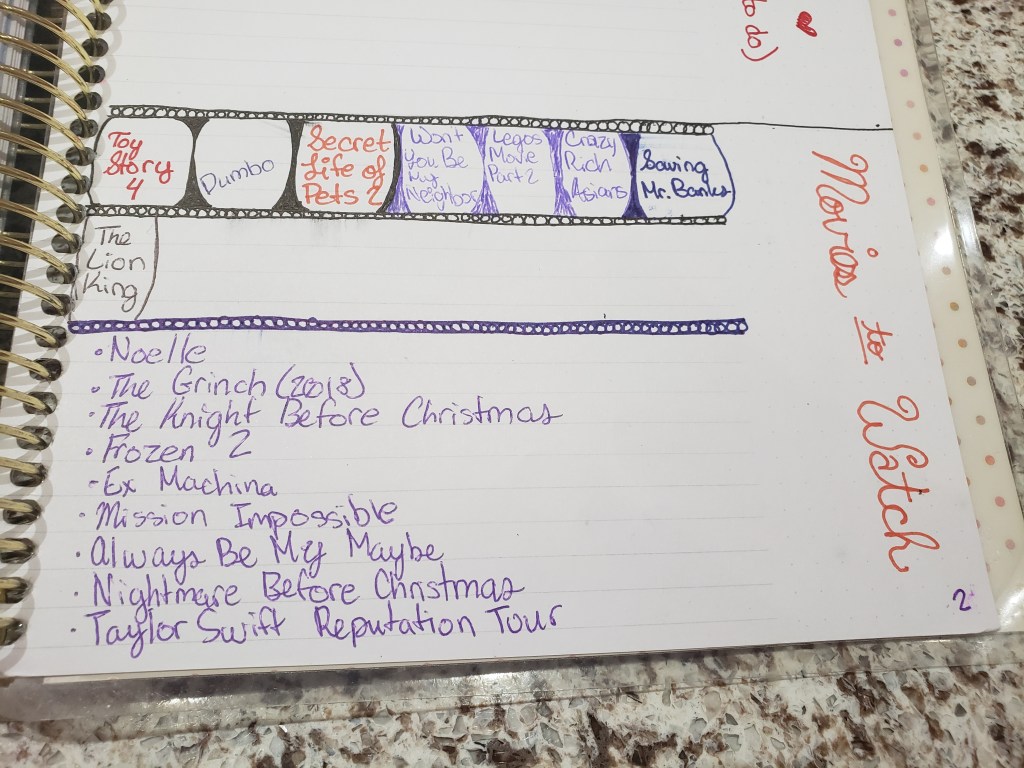 to do)
Toy
Story
4
Dumbo
Secret
Life of
Pets 2
Won't
You Be
My
Neighbor
Legos
Movie
Part 2
Crazy
Rich
Asians
Saving
Mr. Banks
The
Lion
King
Movies to Watch
• Noelle
• The Grinch (2018)
• The Knight Before Christmas
• Frozen 2
- Ex Machina
• Mission Impossible
• Always Be My Maybe
• Nightmare Before Christmas
• Taylor Swift Reputation Tour
2